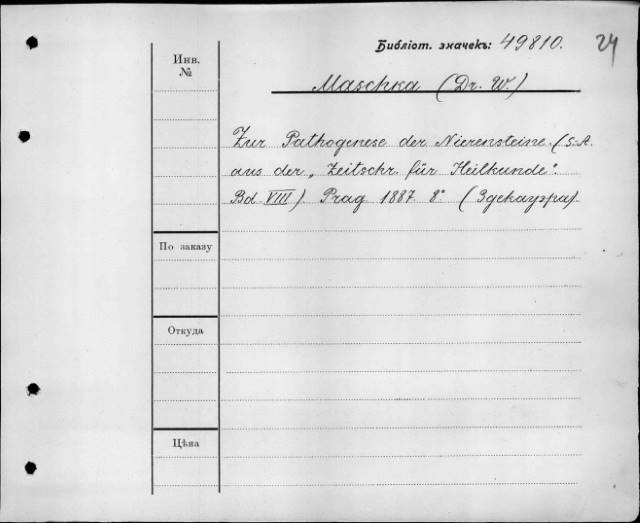 Библіот. значекъ: 49810. 24
Инв.
№
Maschka (Dr. W.)
Zur Pathogenese der Nierensteine. (S-A.
aus der „Zeitschr. für Heilkunde".
Bd. VIII). Prag 1887 8° (
По заказу
Откуда
Цѣна